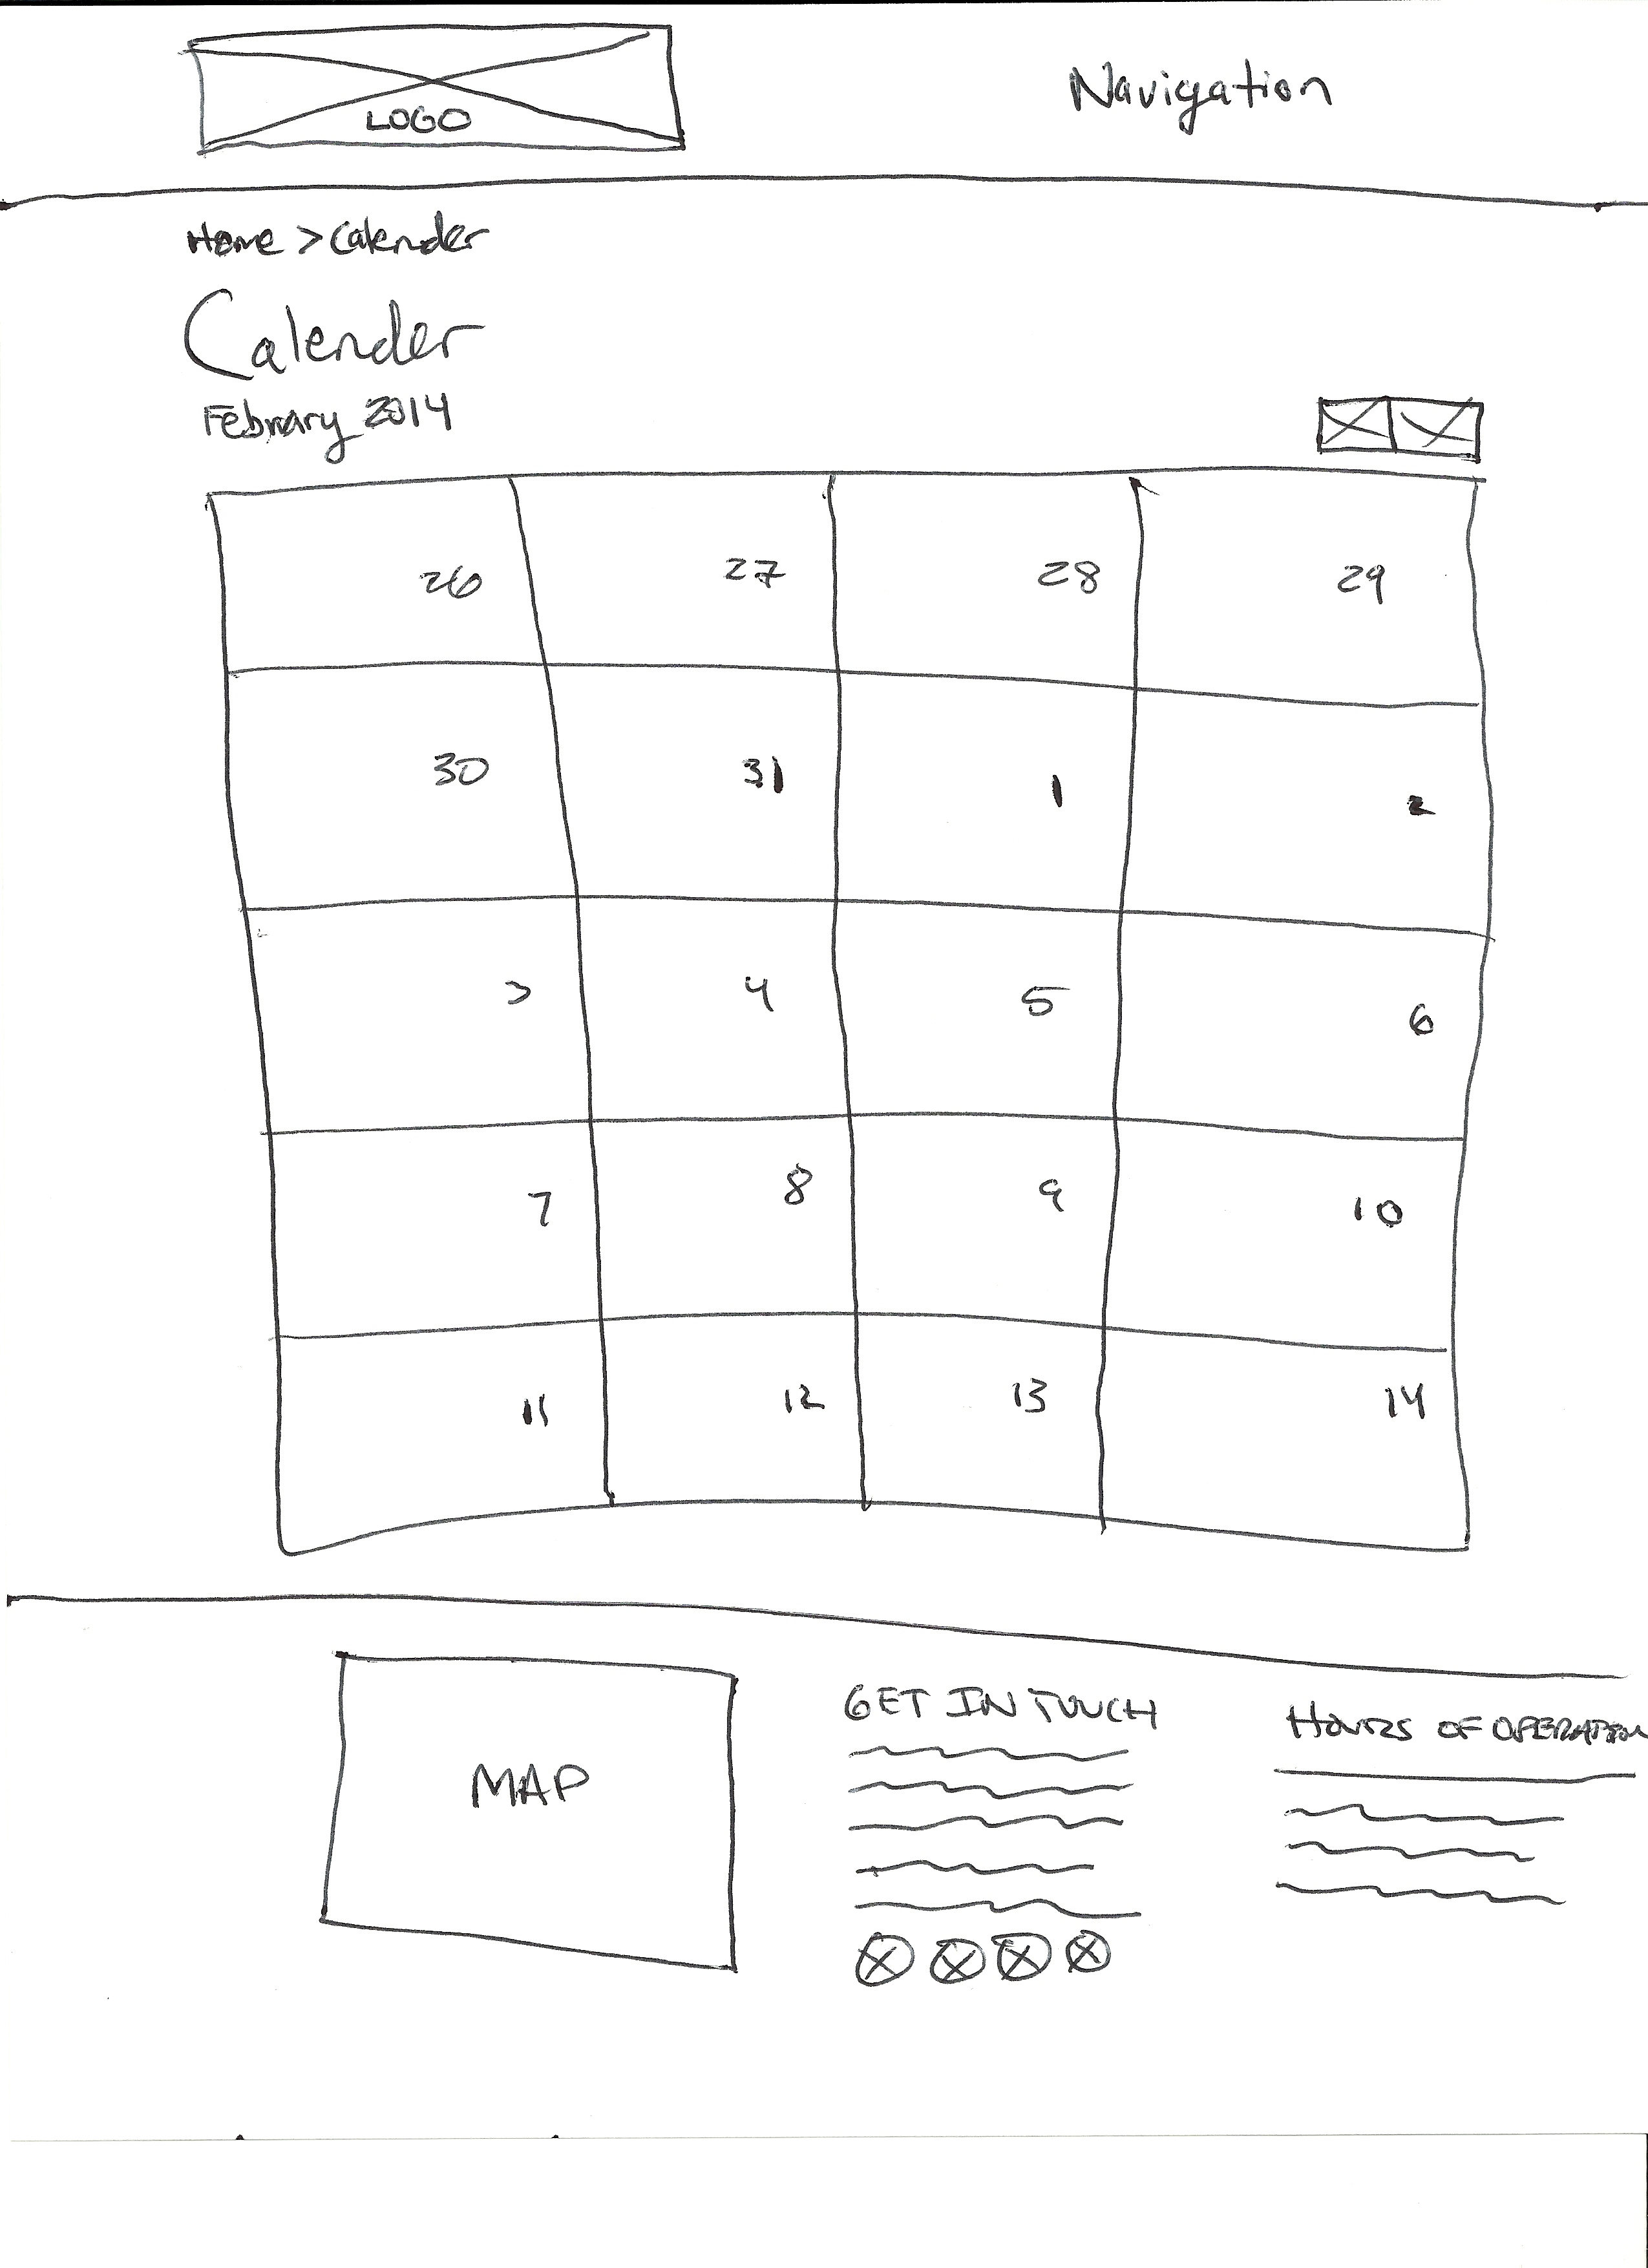 LOGO
Navigation
Home > Calender
Calender
February 2014
26 27 28 29
30 31 1 2
3 4 5 6
7 8 9 10
11 12 13 14
MAP
GET IN TOUCH
HOURS OF OPERATION